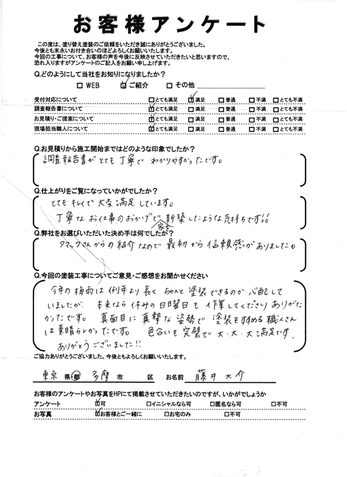 お客様アンケート
この度は、塗り替え塗装のご依頼をいただき誠にありがとうございました。
今後とも末永いお付き合いのほどよろしくお願いいたします。
今回の工事について、お客様の声を今後に反映させていただきたいと思いますので、
恐れ入りますがアンケートのご記入をお願い申し上げます。
Q.どのようにして当社をお知りになりましたか?
□ WEB ☑ ご紹介 □ その他
受付対応について □とても満足 ☑満足 □普通 □不満 □とても不満
調査報告書について ☑とても満足 □満足 □普通 □不満 □とても不満
お見積り・ご提案について ☑とても満足 □満足 □普通 □不満 □とても不満
現場担当職人について ☑とても満足 □満足 □普通 □不満 □とても不満
Q.お見積りから施工開始まではどのような印象でしたか?
調査報告書がとても丁寧でわかりやすかったです。
Q.仕上がりをご覧になっていかがでしたか?
とてもキレイで大変満足しています。
丁寧なお仕事のおかげで、新築したような気持ちです!!
Q.弊社をお選びいただいた決め手は何でしたか?
さんからの紹介なので最初から信頼感がありました。
Q.今回の塗装工事についてご意見・ご感想をお聞かせください
今年の梅雨は例年より長く ちゃんと塗装できるのか心配して
いましたが、本来なら休みの日曜日も作業してくださりありがた
かったです。真面目に真摯な姿勢で塗装を努める職人さん
は素晴らしかったです。色合いも完璧で大・大・大満足です。
ありがとうございました!!
ご協力ありがとうございました。今後ともよろしくお願いいたします。
東京 県都 多摩 市 区 お名前 藤井 大介
お客様のアンケートやお写真をHPにて掲載させていただきたいのですが、いかがでしょうか
アンケート ☑可 □イニシャルなら可 □匿名なら可 □不可
お写真 ☑お客様とご一緒に □お宅のみ □不可